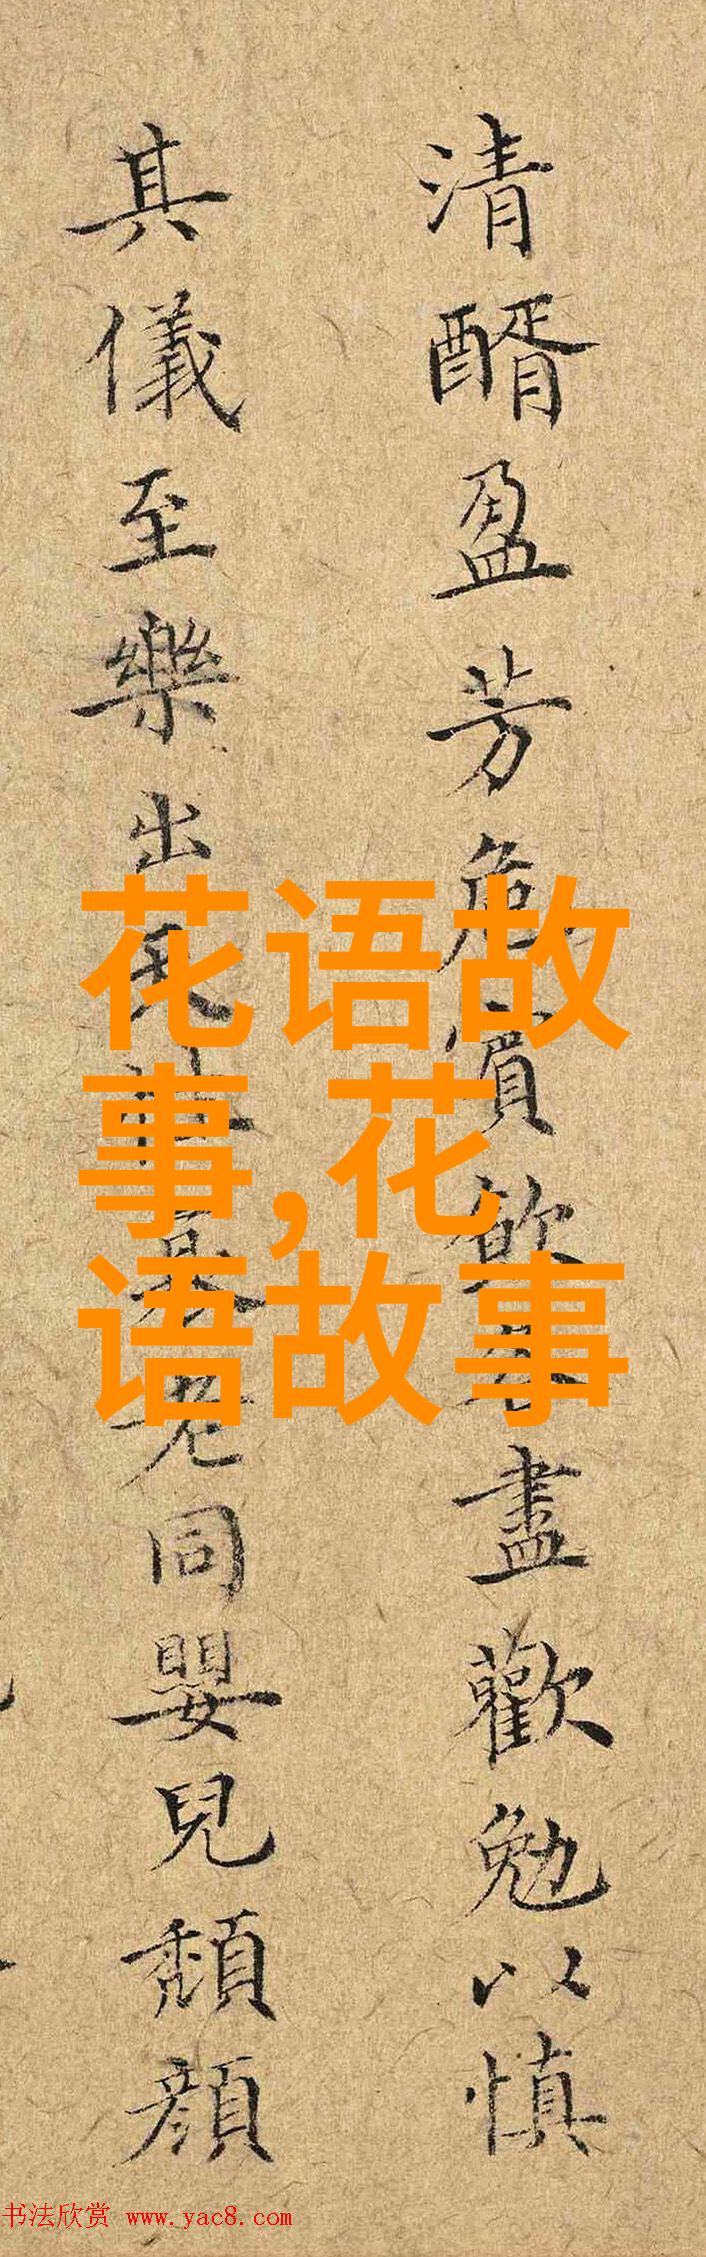 清醑盈芳賓飲盡歡勉以慎
其儀至樂出民老同嬰兒頹顔
花语故
事,花
语故事
书法欣赏 www.yac8.com